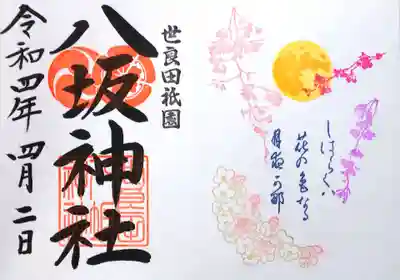 しはらくハ
花の上なる
月夜可那
世良田祇園
八坂神社
令和四年 四月 二日